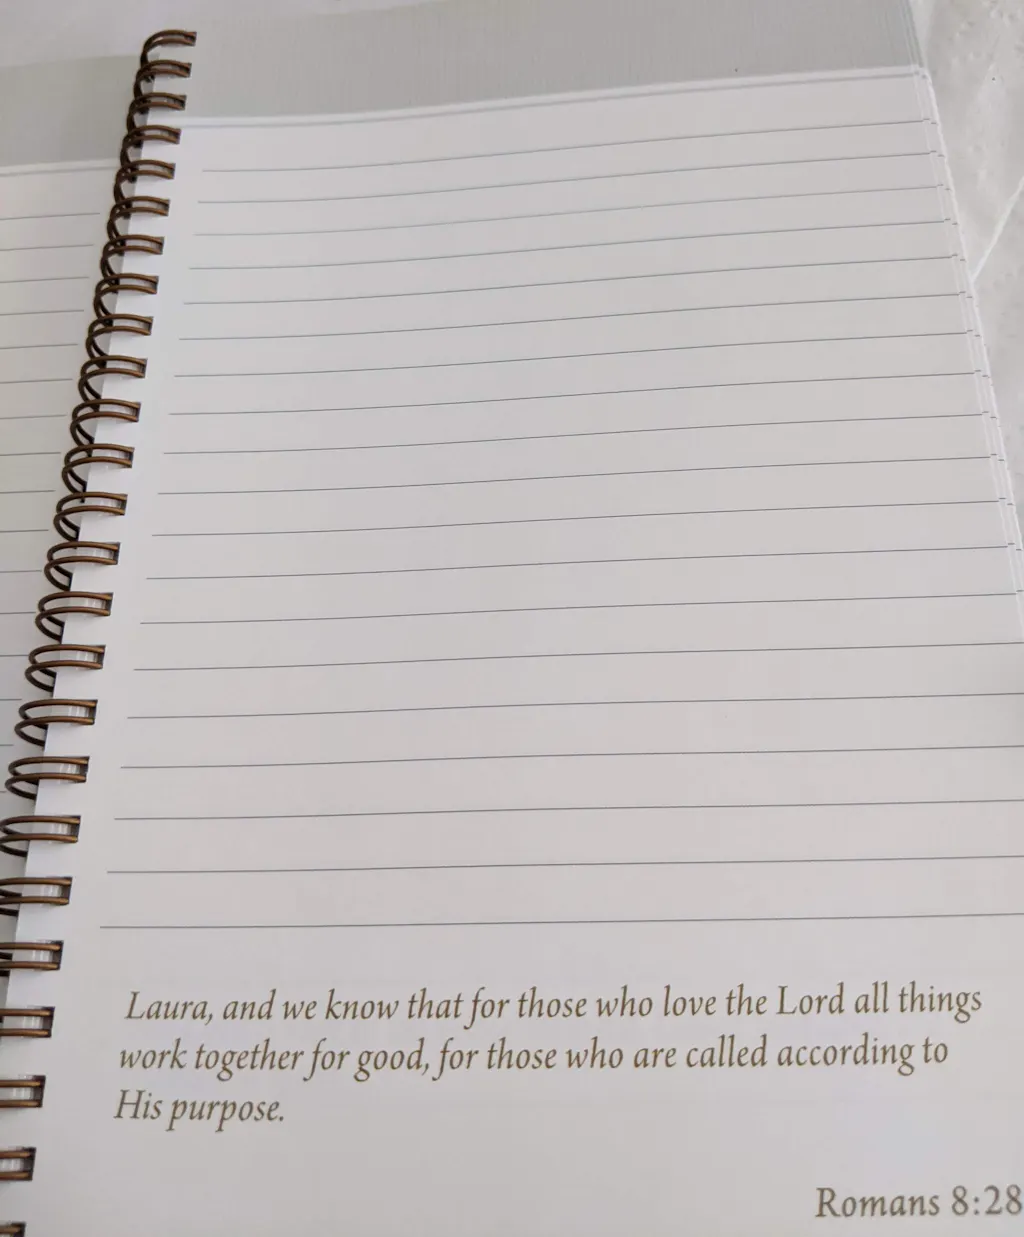 Laura, and we know that for those who love the Lord all things
work together for good, for those who are called according to
His purpose.
Romans 8:28